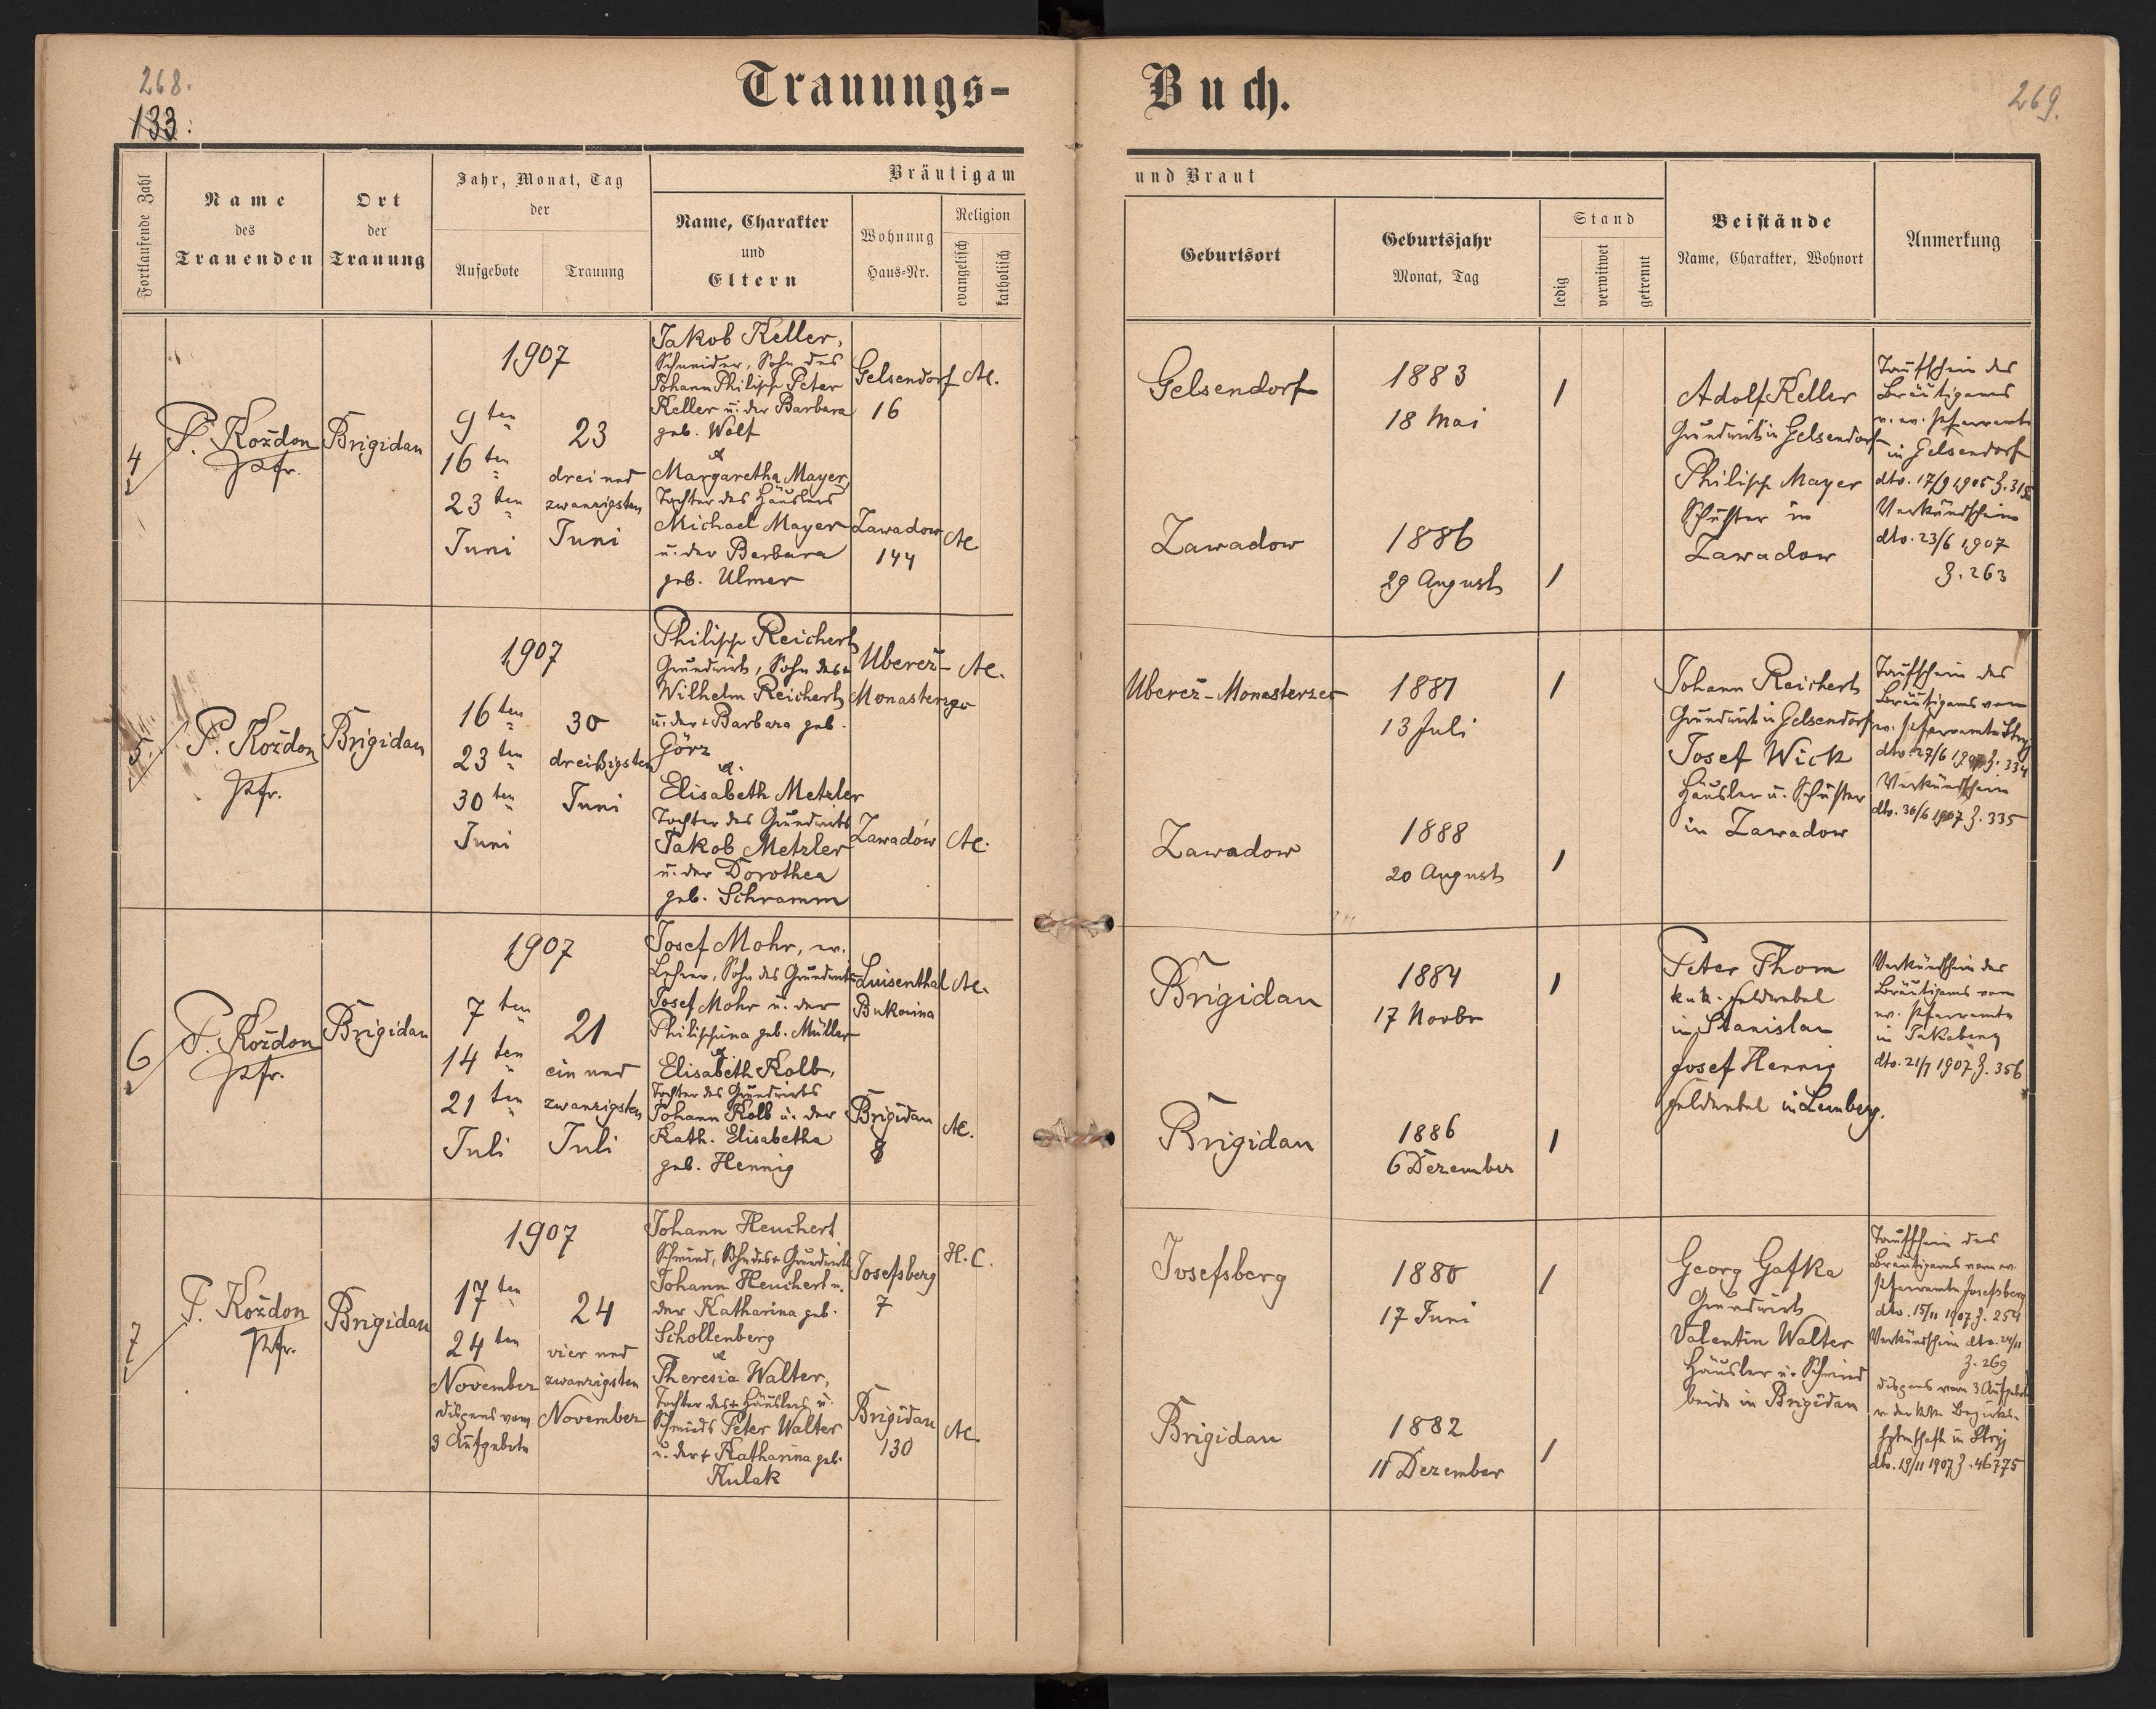 268.
133:
Trauungs-
Fortlaufende Zahl
Name
des
Trauenden
Ort
der
Trauung
Jahr, Monat, Tag
der
Aufgebote
Trauung
Bräutigam
Name, Charakter
und
Eltern
Wohnung
Haus-Nr.
Religion
evangelisch
katholisch
4
P. Kożdon
Pfr.
Brigidau
1907
9ten
16ten
23ten
Juni
23
drei und
zwanzigsten
Juni
Jakob Keller,
Schneider, Sohn des
Johann Philipp Peter
Keller u. der Barbara
geb. Wolf
u
Margaretha Mayer,
Tochter des Häuslers
Michael Mayer
u. der Barbara
geb. Ulmer
Gelsendorf
16
A.C.
Zawadow
144
A.C.
5.
P. Kożdon
Pfr.
Brigidau
1907
16ten
23ten
30ten
Juni
30
dreißigsten
Juni
Philipp Reichert
Grundwirt, Sohn des +
Wilhelm Reichert
u. der + Barbara geb.
Görz
u.
Elisabeth Metzler
Tochter des Grundwirts
Jakob Metzler
u. der Dorothea
geb. Schramm
Ubereż-
Monasterzec
A.C.
Zawadów
A.C.
6
P. Kożdon
Pfr.
Brigidau
1907
7ten
14ten
21ten
Juli
21
ein und
zwanzigsten
Juli
Josef Mohr, ev.
Lehrer, Sohn des Grundwirts
Josef Mohr u. der
Philippina geb. Müller
u
Elisabeth Kolb,
Tochter des Grundwirts
Johann Kolb u. der
Kath. Elisabetha
geb. Hennig
Luisenthal
Bukowina
A.C.
Brigidau
8
A.C.
7
P. Kożdon
Pfr.
Brigidau
1907
17ten
24ten
November
Dispens vom
3 Aufgebote
24
vier und
zwanzigsten
November
Johann Heuchert
Schmied, Sohn des + Grundwirts
Johann Heuchert u.
der Katharina geb.
Schollenberg
u
Theresia Walter,
Tochter des + Häuslers u.
Schmieds Peter Walter
u. der + Katharina geb.
Kulak
Josefsberg
7
H.C.
Brigidau
130
A.C.
Buch.
269.
und Braut
Geburtsort
Geburtsjahr
Monat, Tag
Stand
ledig
verwitwet
getrennt
Beistände
Name, Charakter, Wohnort
Anmerkung
Gelsendorf
1883
18 Mai
1
Zawadow
1886
29 August
1
Adolf Keller
Grundwirt in Gelsendorf
Philipp Mayer
Schuster in
Zawadow
Taufschein des
Bräutigams
v. ev. Pfarramte
in Gelsendorf
dto. 17/9 1906 Z. 315
Verkündschein
dto. 23/6 1907
Z. 263
Ubereż-Monasterzec
1881
13 Juli
1
Zawadow
1888
20 August
1
Johann Reichert
Grundwirt in Gelsendorf
Josef Wick
Häusler u. Schuster
in Zawadow
Taufschein des
Bräutigams vom
ev. Pfarramte Stryj
dto. 27/6 1907 Z. 334
Verkündschein
dto. 30/6 1907 Z. 335
Brigidau
1884
17 Novbr
1
Brigidau
1886
6 Dezember
1
Peter Thom
k.u.k. Feldwebel
in Stanislau
Josef Hennig
Feldwebel in Lemberg.
Verkündschein des
Bräutigams vom
ev. Pfarramte
in Jakobeny
dto. 21/7 1907 Z. 356
Josefsberg
1880
17 Juni
1
Brigidau
1882
11 Dezember
1
Georg Gafka
Grundwirt
Valentin Walter
Häusler u. Schmied
beide in Brigidau
Taufschein des
Bräutigams vom ev.
Pfarramte Josefsberg
dto. 15/11 1907 Z. 254
Verkündschein dto. 24/11
Z. 269
Dispens vom 3 Aufgebot
v. der k.k. Bezirks-
hptmschaft in Stryj
dto. 19/11 1907 Z. 46775